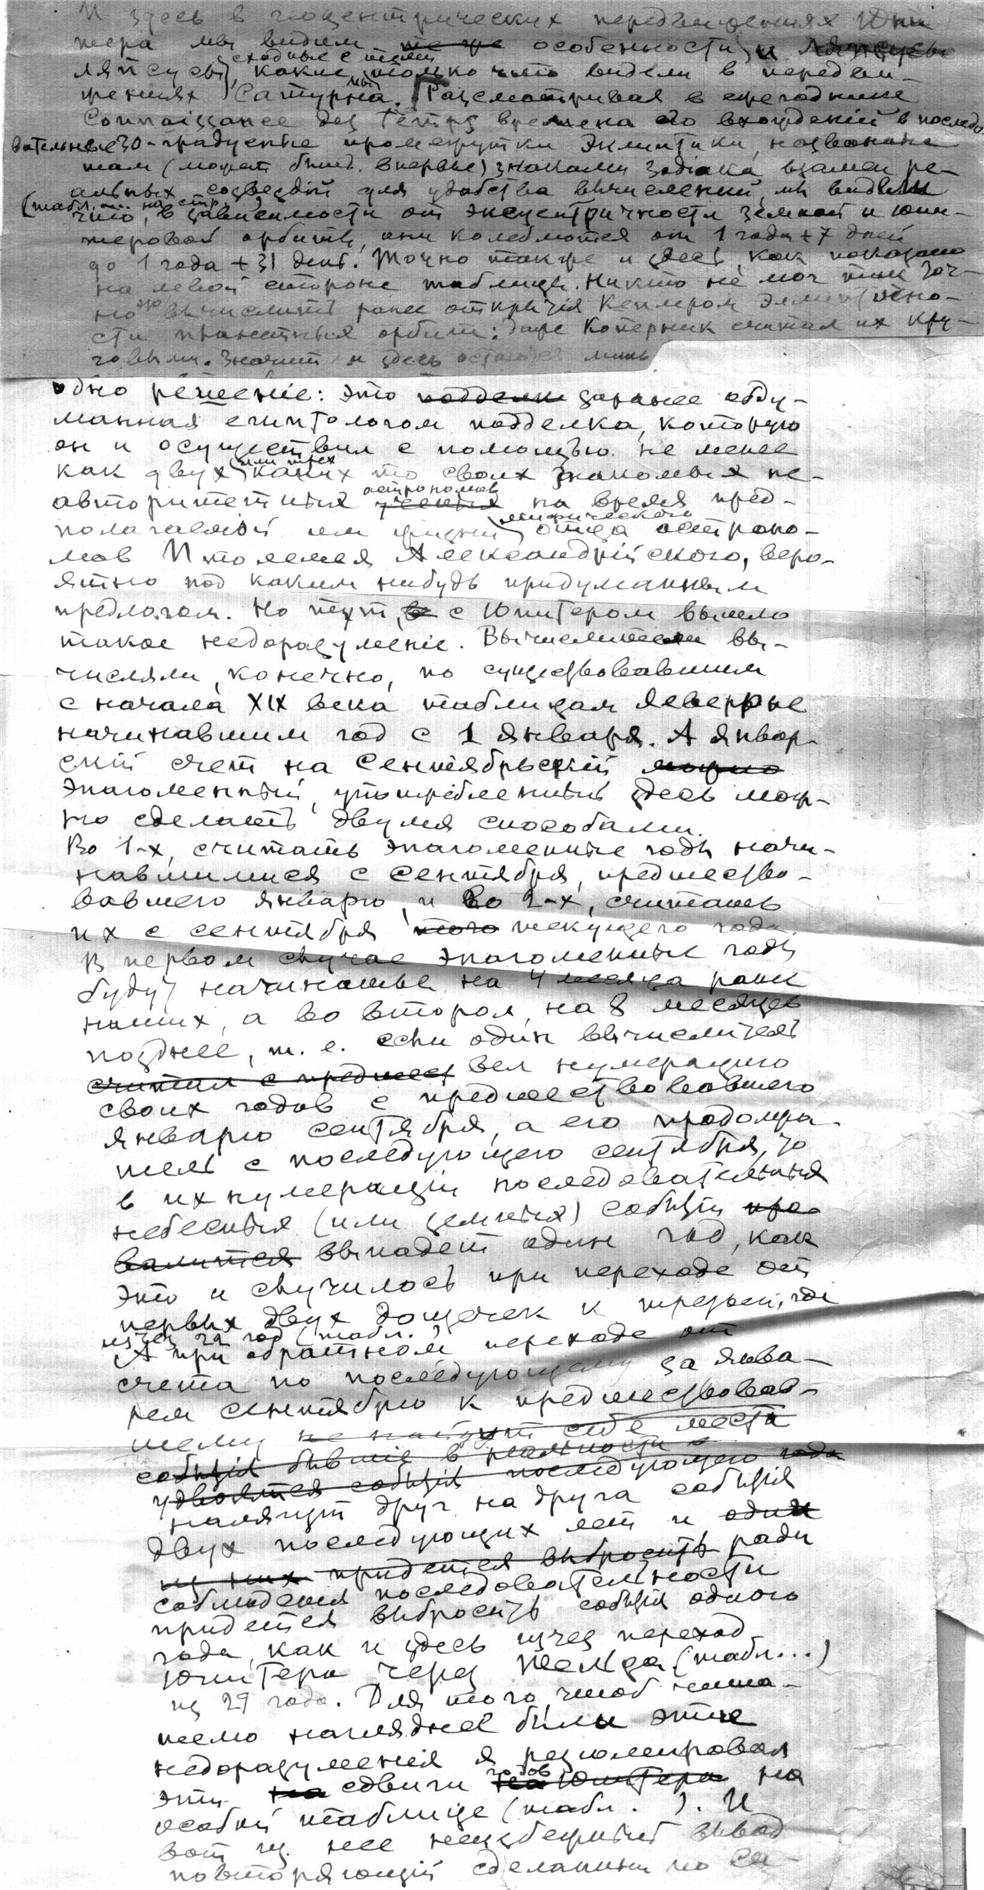 И здесь в геоцентрических передвижениях Юпи-
тера мы видим особенности и
ляпсусы, сходные с теми, какие только что видели в передви-
жениях Сатурна. Рассматривая в ежегоднике
Connaissance des Temps времена его вхождений в последо-
вательные 30-градусные промежутки Эклиптики, названные
там (может быть впервые) знаками Зодиака, взамен ре-
альных созвездий для удобства вычислений, мы видели
(табл. ... на стр. )
что, в зависимости от эксцентричности земной и юпи-
теровой орбиты, они колеблются от 1 года + 7 дней
до 1 года + 31 дня. Точно также и здесь, как показано
на левой стороне таблицы. Никто не мог так точ-
но это вычислить ранее открытия Кеплером эллиптично-
сти планетных орбит: даже Коперник считал их кру-
говыми. Значит и здесь остается лишь
одно решеніе: это подделки заранее обду-
манная египтологом подделка, которую
он и осуществил с помощью не менее
как двух или трех каких то своих знакомых не-
авторитетных астрономов на время пред-
полагаемой им жизни мифического отца астроно-
мов Птолемея Александрійского, веро-
ятно под каким нибудь придуманным
предлогом. Но тут с Юпитером вышло
такое недоразуменіе. Вычислители вы-
числяли, конечно, по существовавшим
с начала XIX века таблицам Леверрье
начинавшим год с 1 января. А январ-
скій счет на Сентябрьскій можно
эпагоменный, употребленный здесь мож-
но сделать двумя способами.
Во 1-х, считать эпагоменные годы начи-
навшимися с сентября, предшество-
вавшего январю, и во 2-х, считать
их с сентября того текущего года.
В первом случае эпагоменные годы
будут начинаться на 4 месяца ранее
наших, а во втором, на 8 месяцев
позднее, т. е. если один вычислитель
считал с предшест вел нумерацию
своих годов с предшествовавшего
январю сентября, а его продолжа-
тель с последующего сентября, то
в их нумерации последовательных
небесных (или земных) событій
выпадет один год, как
это и случилось при переходе от
первых двух дощечек к третьей, где
исчез 22 год (табл. )
А при обратном переходе от
счета по последующему за янва-
рем сентябрю к предшествовав-
шему не найдут себе места
событія бывшіе в реальности
удвоятся событія последующего года
налягут друг на друга событія
двух последующих лет и один
из них придется выбросить ради
соблюденія последовательности
придется выбросить событія одного
года, как и здесь исчез переход
Юпитера через Тельца (табл...)
из 29 года. Для того, чтоб чита-
телю нагляднее были эти
недоразуменія я резюмировал
эти на сдвиги годов Юпитера на
особой таблице (табл. ). И
вот из нее неизбежный вывод
повторяющій сделанный по Са-